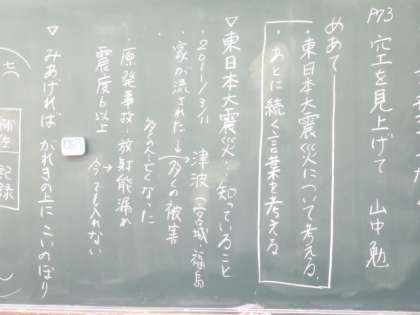 P73 空を見上げて 山中勉
めあて
・東日本大震災について考える。
・あとに続く言葉を考える
▽東日本大震災…知っていること
・2011/3/11 津波(宮城・福島
・家が流された→多くの被害
多くの人が亡くなった
・原発事故・放射能漏れ
→今でも入れない
震度6以上
▽みあげれば がれきの上に こいのぼり
記録